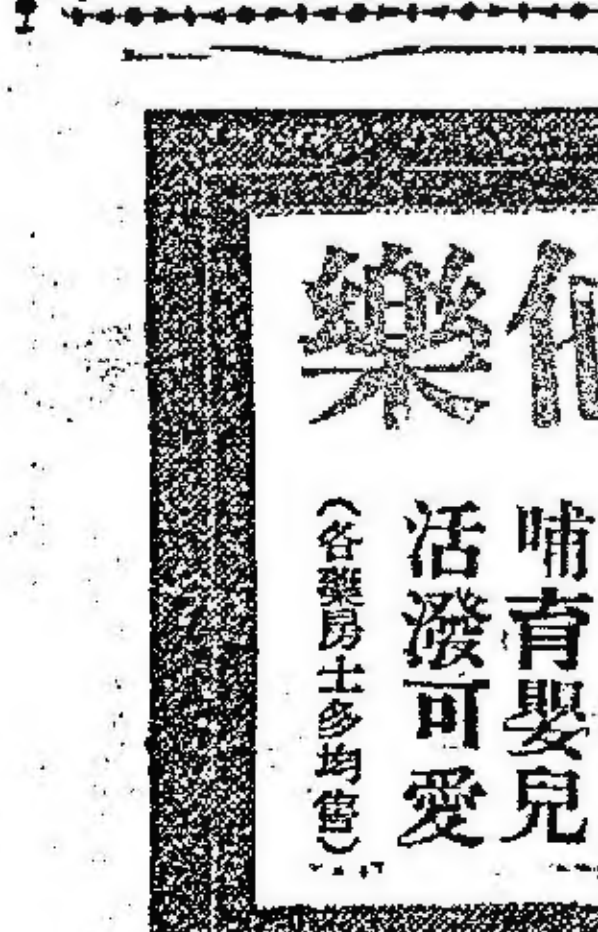 樂
哺育嬰兒
活潑可愛
(各藥房士多均售)